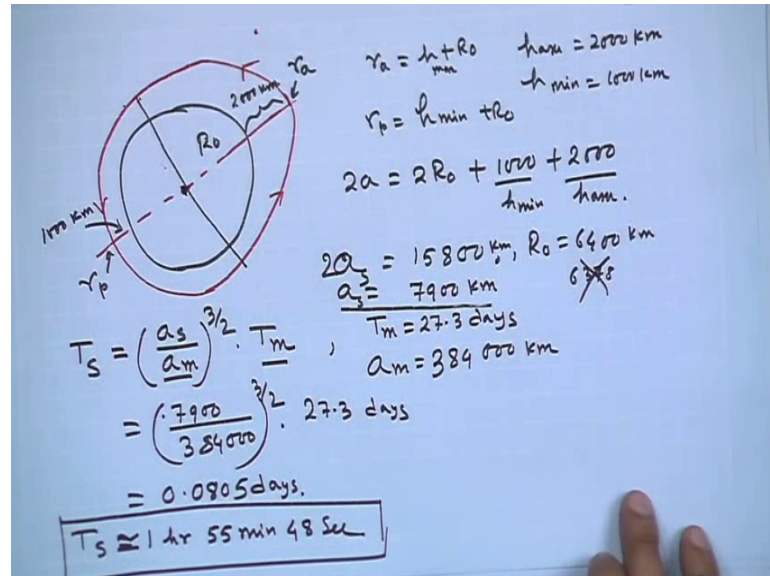 2000 km
ra
R0
1000 km
rp
ra = h + R0
mm
ham = 2000 km
h min = 1000 km
rp = hmin + R0
2a = 2R0 + 1000/hmin + 2000/ham.
2as = 15800 km, R0 = 6400 km
6378
as = 7900 km
Tm = 27.3 days
Ts = (as/am)^3/2 . Tm , am = 384 000 km
= (7900/384000)^3/2 . 27.3 days
= 0.0805 days.
Ts ≅ 1 hr 55 min 48 Sec